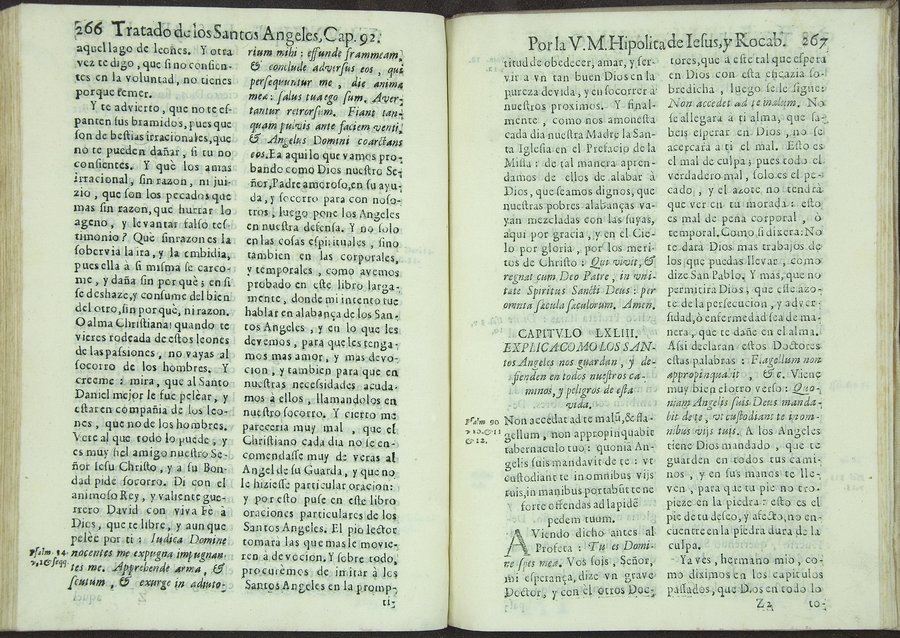 266 Tratado de los Santos Angeles, Cap. 92.
aquel lago de leones. Y otra
vez te digo, que si no consien-
tes en la voluntad, no tienes
porque temer.
Y te advierto, que no te es-
panten sus bramidos, pues que
son de bestias irracionales, que
no te pueden dañar, si tu no
consientes. Y què los amas
irracional, sin razon, ni jui-
zio, que son los pecados que
mas sin razon, que hurtar lo
ageno, y levantar falso tes-
timonio? Què sinrazon es la
sobervia la ira, y la embidia,
pues ella à si misma se carco-
me, y daña sin por què; en si
se deshaze, y consume del bien
del otro, sin por què, ni razon.
O alma Christiana! quando te
vieres rodeada de estos leones
de las passiones, no vayas al
socorro de los hombres. Y
creeme: mira, que al Santo
Daniel mejor le fue peleàr, y
estar en compañia de los leo-
nes, que no de los hombres.
Vete al que todo lo puede, y
es muy fiel amigo nuestro Se-
ñor Iesu Christo, y a su Bon-
dad pide socorro. Di con el
animoso Rey, y valiente gue-
rrero David con viva Fè à
Dios, que te libre, y aunque
pelee por ti: Iudica Domine
nocentes me expugna impugnan-
tes me. Apprehende arma, &
scutum, & exurge in adiuto-
Psalm. 34.
v. 1. & seqq.
rium mihi: effunde frameam
& conclude adversus eos, qui
persequuntur me, dic anima
mea: salus tua ego sum. Aver-
tantur retrorsum. Fiant tan-
quam pulvis ante faciem venti,
& Angelus Domini coarctans
eos. Ea aqui lo que vamos pro-
bando como Dios nuestro Se-
ñor, Padre amoroso, en su ayu-
da, y socorro para con noso-
tros, luego pone los Angeles
en nuestra defensa. Y no solo
en las cosas espirituales, sino
tambien en las corporales,
y temporales, como avemos
probado en este libro larga-
mente, donde mi intento fue
hablar en alabança de los San-
tos Angeles, y en lo que les
devemos, para que les tenga-
mos mas amor, y mas devo-
cion, y tambien para que en
nuestras necesidades acuda-
mos à ellos, llamandolos en
nuestro socorro. Y cierto me
pareceria muy mal, que el
Christiano cada dia no se en-
comendasse muy de veras al
Angel de su Guarda, y que no
le hiziesse particular oracion:
y por esto puse en este libro
oraciones particulares de los
Santos Angeles. El pio lector
tomarà las que mas le movie-
ren à devocion. Y sobre todo,
procurèmos de imitàr à los
Santos Angeles en la promp-
ti-
Por la V. M. Hipolita de Iesus, y Rocab. 267
titud de obedecer, amar, y ser-
vir à vn tan buen Dios en la
pureza de vida, y en socorrer à
nuestros proximos. Y final-
mente, como nos amonesta
cada dia nuestra Madre la San-
ta Iglesia en el Prefacio de la
Missa: de tal manera apren-
damos de ellos de alabar à
Dios, que seamos dignos, que
nuestras pobres alabanças va-
yan mezcladas con las suyas,
aqui por gracia, y en el Cie-
lo por gloria, por los meri-
tos de Christo: Qui vivit, &
regnat cum Deo Patre, in vni-
tate Spiritus Sancti Deus: per
omnia sæcula sæculorum. Amen.
CAPITVLO LXLIII.
EXPLICA COMO LOS SAN-
tos Angeles nos guardan, y de-
fienden en todos nuestros ca-
minos, y peligros de esta
vida.
Psalm 90
v. 10. & 11
& 12.
Non accedat ad te malũ, & fla-
gellum, non appropinquabit
tabernaculo tuo: quoniã An-
gelis suis mandavit de te: vt
custodiant te in omnibus vijs
tuis, in manibus portabũt te ne
forte offendas ad lapidẽ
pedem tuum.
AViendo dicho antes al
Profeta: Tu es Domi-
ne spes mea. Vos sois, Señor,
mi esperança, dize vn grave
Doctor, y con el otros Doc-
tores, que à este tal que espera
en Dios con esta eficazia so-
bredicha, luego se le sigue:
Non accedet ad te malum. No
se allegarà a ti alma, que sa-
beis esperar en Dios, no se
acercarà a ti el mal. Esto es
el mal de culpa; pues todo el
verdadero mal, solo es el pe-
cado, y el azote no tendrà
que ver en tu morada: esto
es mal de pena corporal, ò
temporal. Como si dixera: No
te darà Dios mas trabajos de
los que puedas llevar, como
dize San Pablo. Y mas, que no
permitirà Dios; que este azo-
te de la persecucion, y adver-
sidad, ò enfermedad sea de ma-
nera, que te dañe en el alma.
Assi declaran estos Doctores
estas palabras: Flagellum non
appropinquabit, &c. Viene
muy bien el otro verso: Quo-
niam Angelis suis Deus manda-
bit de te, vt custodiant te in om-
nibus vijs tuis. A los Angeles
tiene Dios mandado, que te
guarden en todos tus cami-
nos, y en sus manos te lle-
ven, para que tu pie no tro-
pieze en la piedra: esto es el
pie de tu deseo, y afecto, no en-
cuentre en la piedra dura de la
culpa.
Ya vès, hermano mio, co-
mo diximos en los capitulos
passados, que Dios en todo lo
Z2 to-